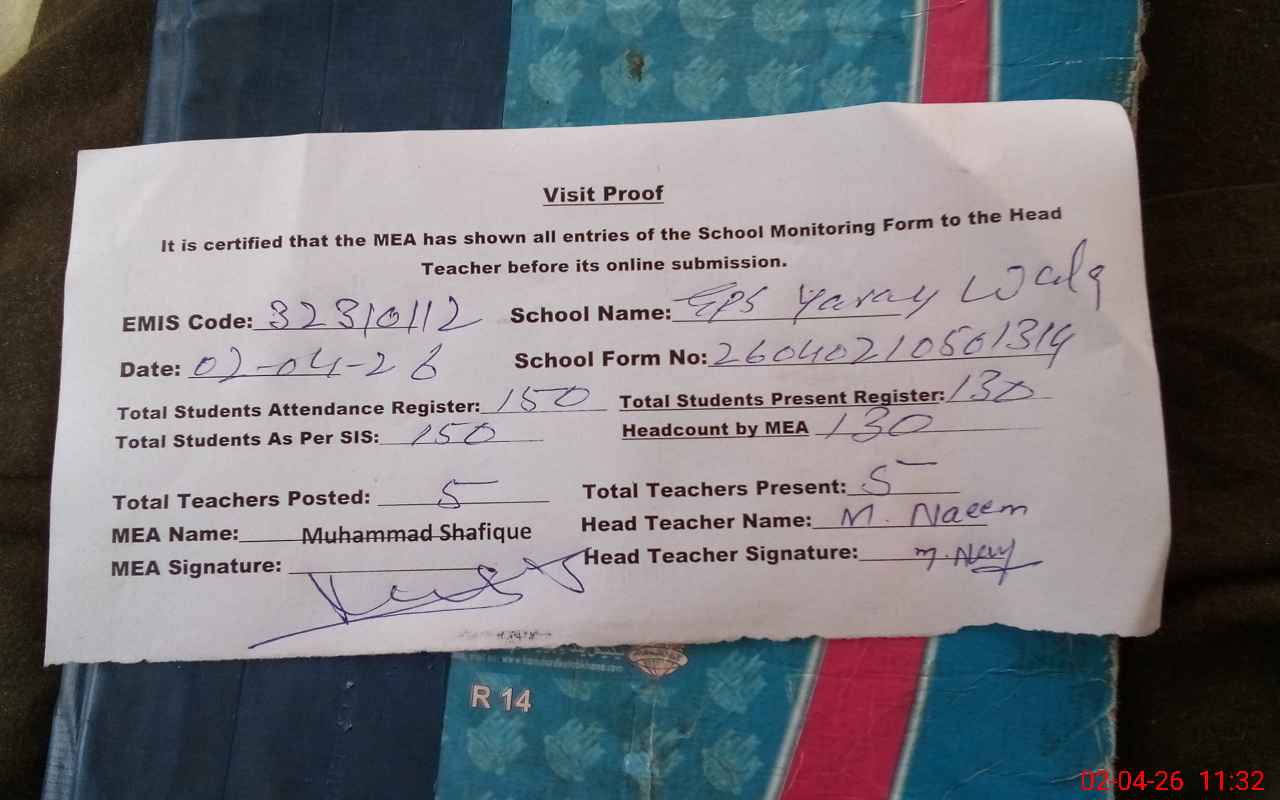 Visit Proof
It is certified that the MEA has shown all entries of the School Monitoring Form to the Head
Teacher before its online submission.
EMIS Code: 32310112 School Name: GPS Yaray Wala
Date: 02-04-26 School Form No: 26040210501314
Total Students Attendance Register: 150 Total Students Present Register: 130
Total Students As Per SIS: 150 Headcount by MEA 130
Total Teachers Posted: 5 Total Teachers Present: 5
MEA Name: Muhammad Shafique Head Teacher Name: M. Naeem
MEA Signature: Head Teacher Signature:
R 14
02-04-26 11:32